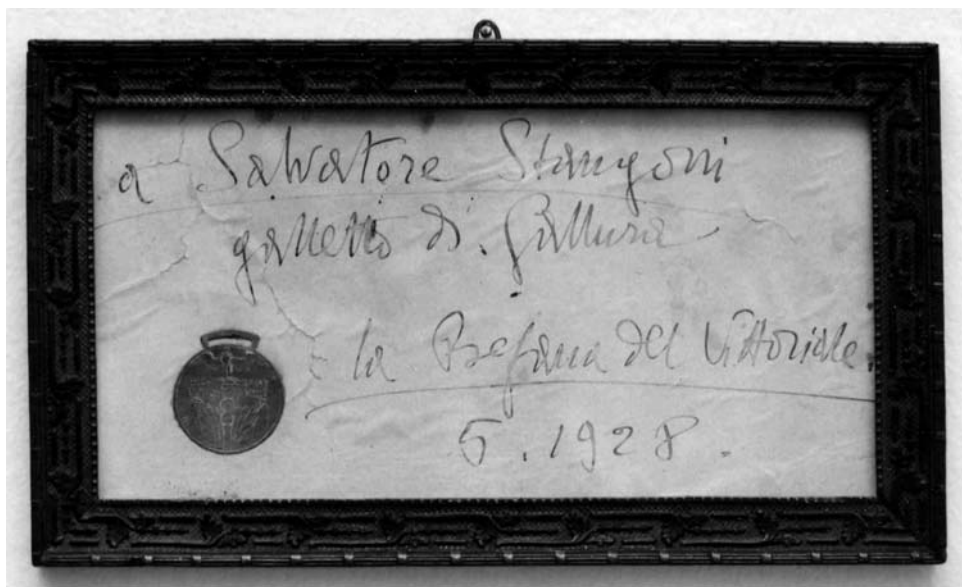 a Salvatore Stangoni
galletto di Gallura
la Befana del Vittoriale.
5.1928.